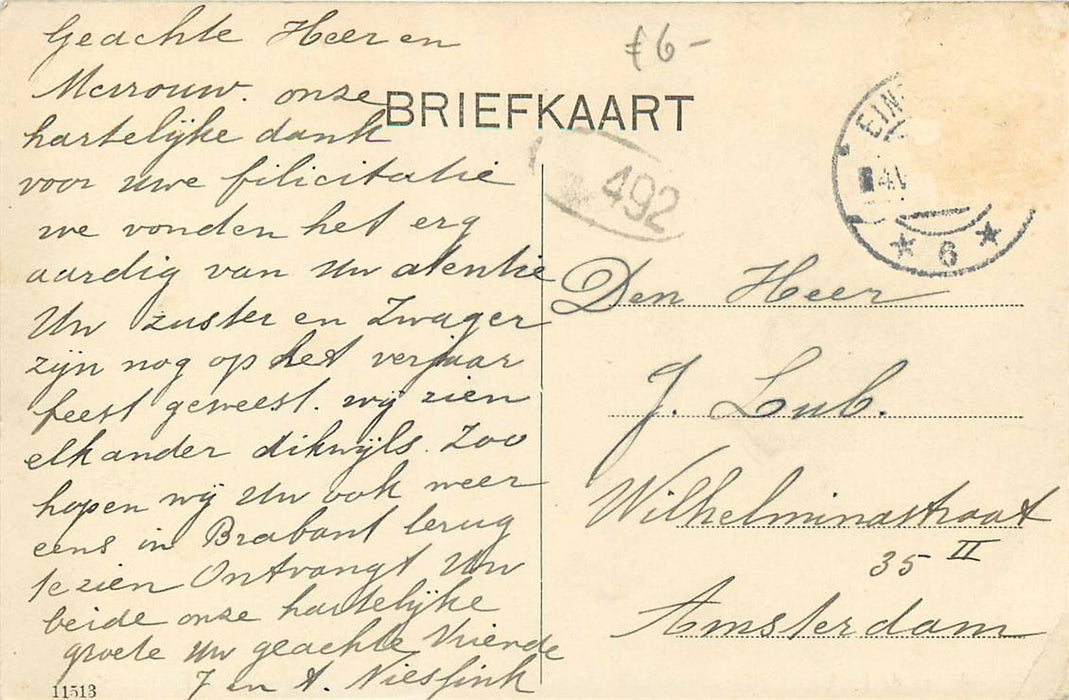 Geachte Heer en
Mevrouw. onze
hartelijke dank
voor uwe filicitatie
we vonden het erg
aardig van Uw atentie
Uw zuster en Zwager
zijn nog op het verjaar
feest geweest. wij zien
elkander dikwijls. Zoo
hopen wij Uw ook weer
eens in Brabant terug
te zien Ontvangt Uw
beide onze hartelijke
groete Uw geachte Vriende
J en A. Niesfink
11513
BRIEFKAART
£6-
492
EIN
4
6
Den Heer
J. Lub.
Wilhelminastraat
35 II
Amsterdam